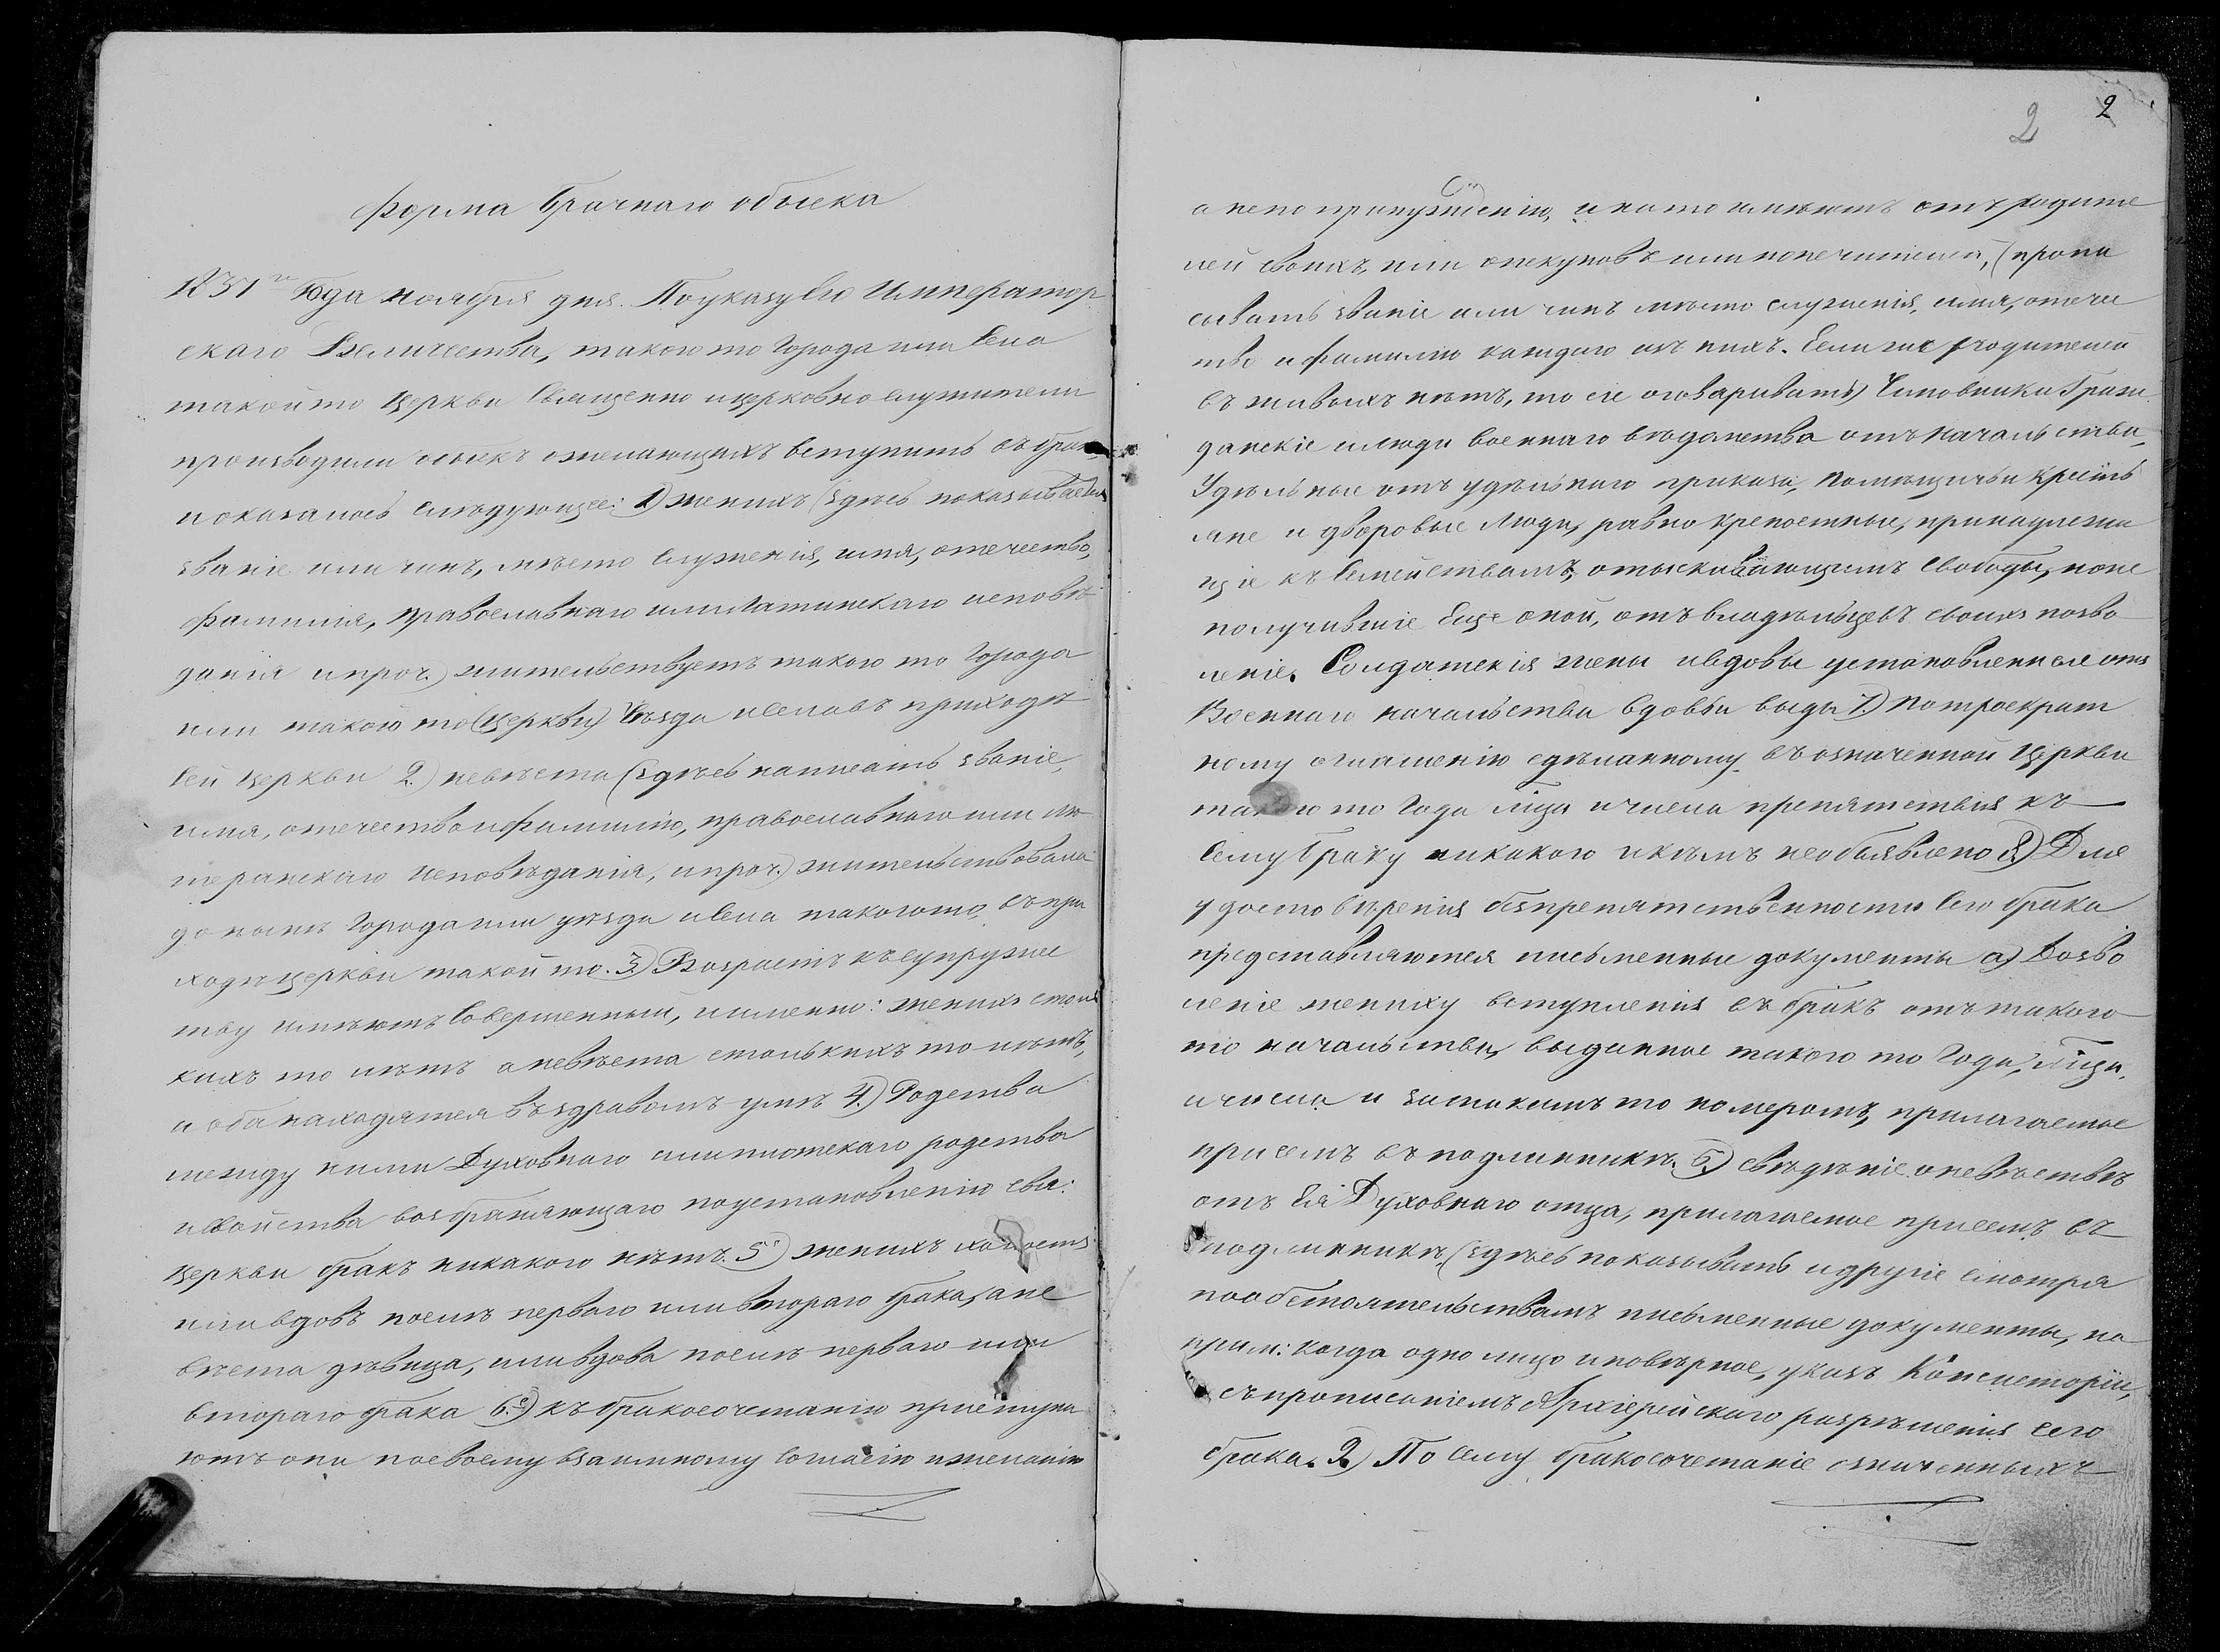 Форма брачнаго обыска
1837го Года ноября дня. По указу Его Император
скаго Величества, такого то Города или Села
такой то Церкви Священно и церковно служители
производили обыскъ о желающихъ вступить въ бракъ
и оказалось слѣдующее: 1) женихъ (здѣсь показывается
званіе или чинъ, мѣсто служенія, имя, отечество,
фамилія, православнаго или Латинскаго исповѣ
данія и проч.) жительствуетъ такого то Города
или такой то (Церкви) Уѣзда и Села въ приходѣ
сей Церкви 2.) невѣста (здѣсь написать званіе,
имя, отечество и фамилію, православнаго или лю
теранскаго исповѣданія, и проч.) жительствовала
до нынѣ Города или уѣзда и Села такого то, въ при
ходѣ церкви такой то. 3.) Возрастъ къ супруже
тву имѣютъ Совершенный, и именно: женихъ столь
кихъ то лѣтъ а невѣста столькихъ то лѣтъ,
и оба находятся въ здравомъ умѣ 4.) Родства
между ними Духовнаго или плотскаго родства
и свойства возбраняющаго по установленію свя:
Церкви бракъ никакого нѣтъ. 5) женихъ холостъ
или вдовъ послѣ перваго или втораго брака, а не
вѣста дѣвица, или вдова послѣ перваго или
втораго брака 6.е) къ бракосочетанію приступа
ютъ они по своему взаимному согласію и желанію
2 2
а не по принужденію, и на то имѣютъ отъ родите
лей своихъ, или опекуновъ или попечителей, (пропи
сывать званіе или чинъ мѣсто служенія, имя, отечес
тво и фамилію каждаго изъ нихъ. Если же родителей
въ живыхъ нѣтъ, то сіе оговаривать) Чиновники Граж
данскіе и люди военнаго вѣдомства отъ Начальства,
Удѣльные отъ удѣльнаго приказа, Помѣщичьи Кресть
яне и дворовые Люди, равно крепостные, принадлежа
щіе къ Семействамъ, отыскивающимъ Свободы, но не
получившіе Еще оной, отъ владѣльцевъ своихъ позво
леніе. Солдатскія жены и вдовы установленные отъ
Военнаго начальства вдовьи виды 7.) По троекрат
ному оглашенію сдѣланному въ означенной Церкви
такого то Года м҃ца и числа препятствія къ
Сему браку никакого и кѣмъ не объявлено 8.) Для
удостовѣренія безпрепятственности Сего брака
представляются письменные документы а) Дозво
леніе жениху вступленія въ бракъ отъ такого
то начальства, выданное такого то Года, м҃ца,
и числа и за такимъ то номеромъ, прилагаемое
при семъ въ подлинникѣ. б.) свѣдѣніе о невѣстѣ
отъ Ея Духовнаго отца, прилагаемое при семъ въ
подлинникѣ, (здѣсь показывать и другіе смотря
по обстоятельствамъ письменные документы, на
прим: когда одно лицо иновѣрное, указъ Консисторіи,
съ прописаніемъ Архіерейскаго разрѣшенія сего
брака. 9.) По Сему бракосочетаніе означенныхъ